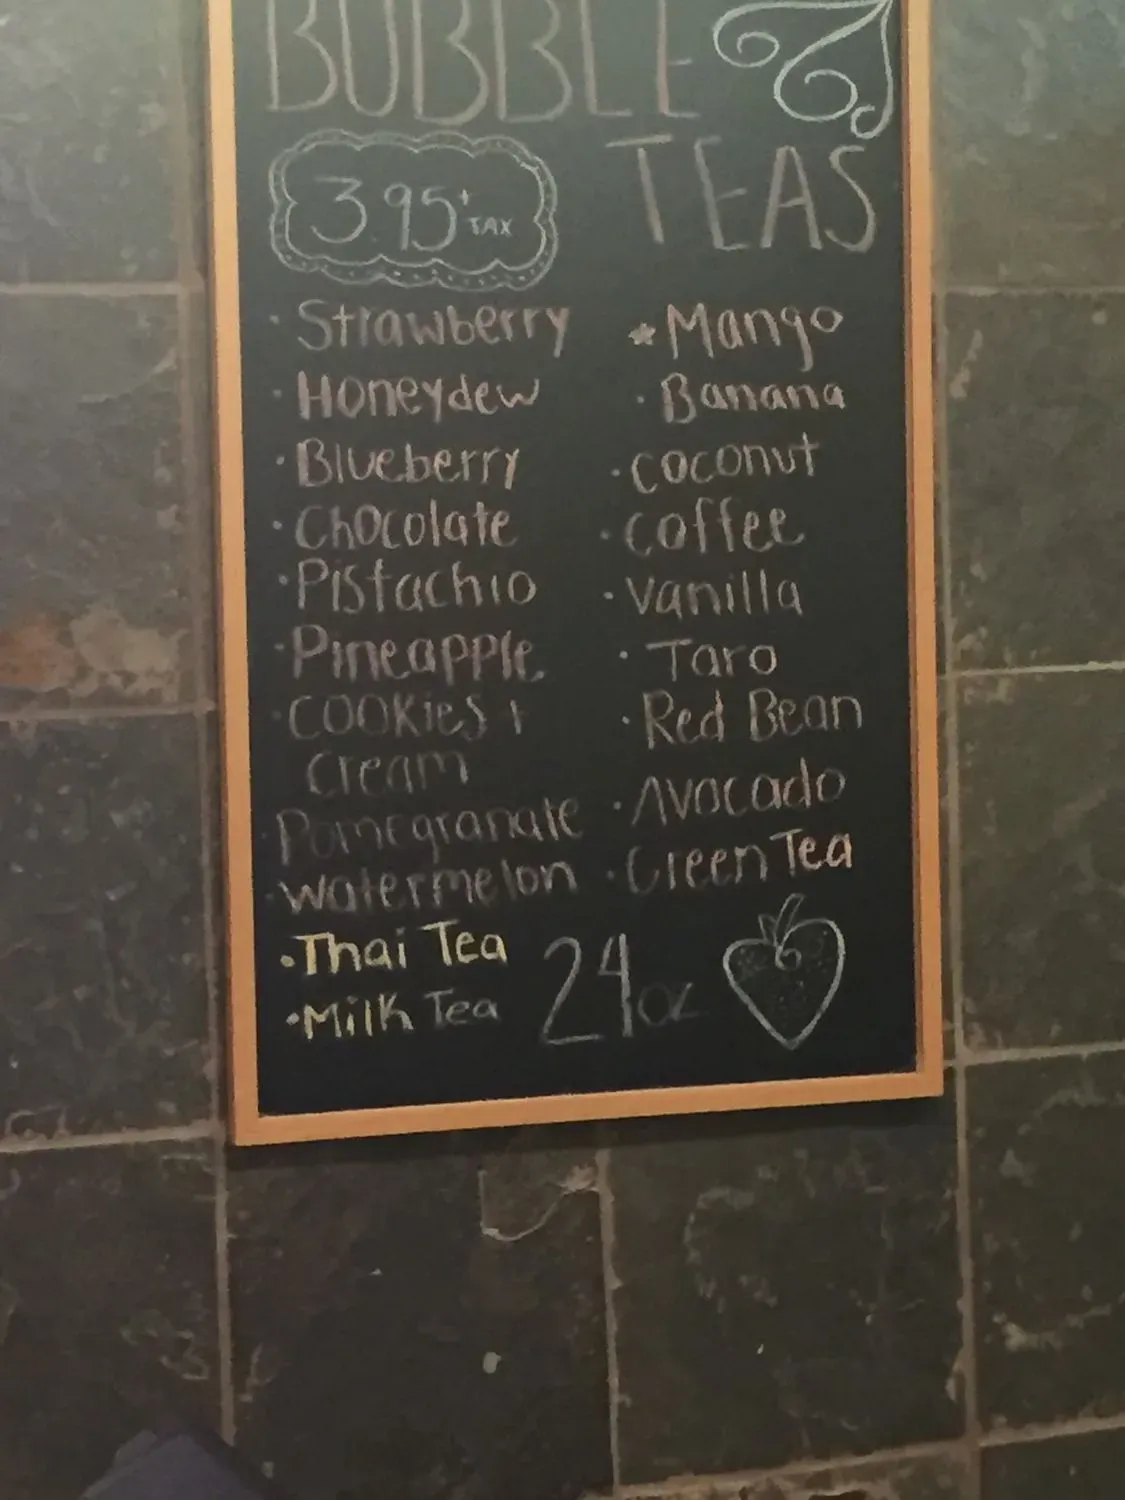 BUBBLE
TEAS
3.95 + TAX
· Strawberry
· Honeydew
· Blueberry
· Chocolate
· Pistachio
· Pineapple
· Cookies +
Cream
· Pomegranate
· Watermelon
· Thai Tea
· Milk Tea
* Mango
· Banana
· Coconut
· Coffee
· Vanilla
· Taro
· Red Bean
· Avocado
· Green Tea
24 oz